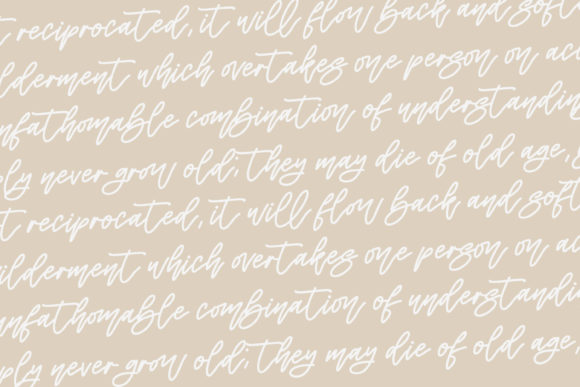 t reciprocated, it will flow back and soft
ilderment which overtakes one person on acc
unfathomable combination of understanding
ply never grow old; they may die of old age,
t reciprocated, it will flow back and soft
ilderment which overtakes one person on ac
unfathomable combination of understandin
ply never grow old; they may die of old age,